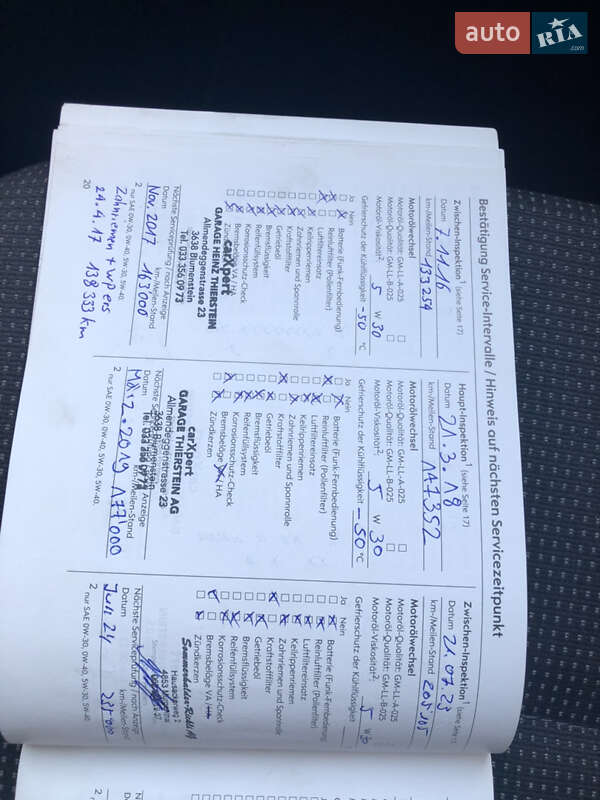 auto RIA.com
Bestätigung Service-Intervalle / Hinweis auf nächsten Servicezeitpunkt
Zwischen-Inspektion¹ (siehe Seite 17)
Datum 7.11.16
km-/Meilen-Stand 133254
Motorölwechsel
Motoröl-Qualität: GM-LL-A-025
Motoröl-Qualität: GM-LL-B-025
Motoröl-Viskosität²: 5 W 30
Gefrierschutz der Kühlflüssigkeit -50 °C
Ja Nein
Batterie (Funk-Fernbedienung)
Reinluftfilter (Pollenfilter)
Luftfiltereinsatz
Keilrippenriemen
Zahnriemen und Spannrolle
Kraftstofffilter
Getriebeöl
Bremsflüssigkeit
Reifenfüllsystem
Korrosionsschutz-Check
Bremsbeläge VA / HA
Zündkerzen
carXpert
GARAGE HEINZ THIERSTEIN
Allmendeggenstrasse 23
3638 Blumenstein
Tel. 033 356 09 73
Nächste Serviceprüfung / nach Anzeige
Datum km-/Meilen-Stand
Nov. 2017 163000
2 nur SAE 0W-30, 0W-40, 5W-30, 5W-40.
Zahnriemen + wpers
21.4.17 138333 km
20
Haupt-Inspektion¹ (siehe Seite 17)
Datum 21.3.18
km-/Meilen-Stand 147352
Motorölwechsel
Motoröl-Qualität: GM-LL-A-025
Motoröl-Qualität: GM-LL-B-025
Motoröl-Viskosität²: 5 W 30
Gefrierschutz der Kühlflüssigkeit -50 °C
Ja Nein
Batterie (Funk-Fernbedienung)
Reinluftfilter (Pollenfilter)
Luftfiltereinsatz
Keilrippenriemen
Zahnriemen und Spannrolle
Kraftstofffilter
Getriebeöl
Bremsflüssigkeit
Reifenfüllsystem
Korrosionsschutz-Check
Bremsbeläge VA / HA
Zündkerzen
carXpert
GARAGE THIERSTEIN AG
Allmendeggenstrasse 23
3638 Blumenstein
Tel. 033 356 09 73
Anzeige
Datum km-/Meilen-Stand
März. 2019 177'000
2 nur SAE 0W-30, 0W-40, 5W-30, 5W-40.
Zwischen-Inspektion¹
Datum 21.07.23
km-/Meilen-Stand 205105
Motorölwechsel
Motoröl-Qualität: GM-LL-A-025
Motoröl-Qualität: GM-LL-B-025
Motoröl-Viskosität²: 5 W 30
Gefrierschutz der Kühlflüssigkeit
Ja Nein
Batterie (Funk-Fernbedienung
Reinluftfilter (Pollenfilter)
Luftfiltereinsatz
Keilrippenriemen
Zahnriemen und Spannrolle
Kraftstofffilter
Getriebeöl
Bremsflüssigkeit
Reifenfüllsystem
Korrosionsschutz-Check
Bremsbeläge VA / HA
Zündkerzen
Nächste Serviceprüfung / nach Anzeige
Datum km-/Meilen-Stand
Juli 24
2 nur SAE 0W-30, 0W-40, 5W-30, 5W-40